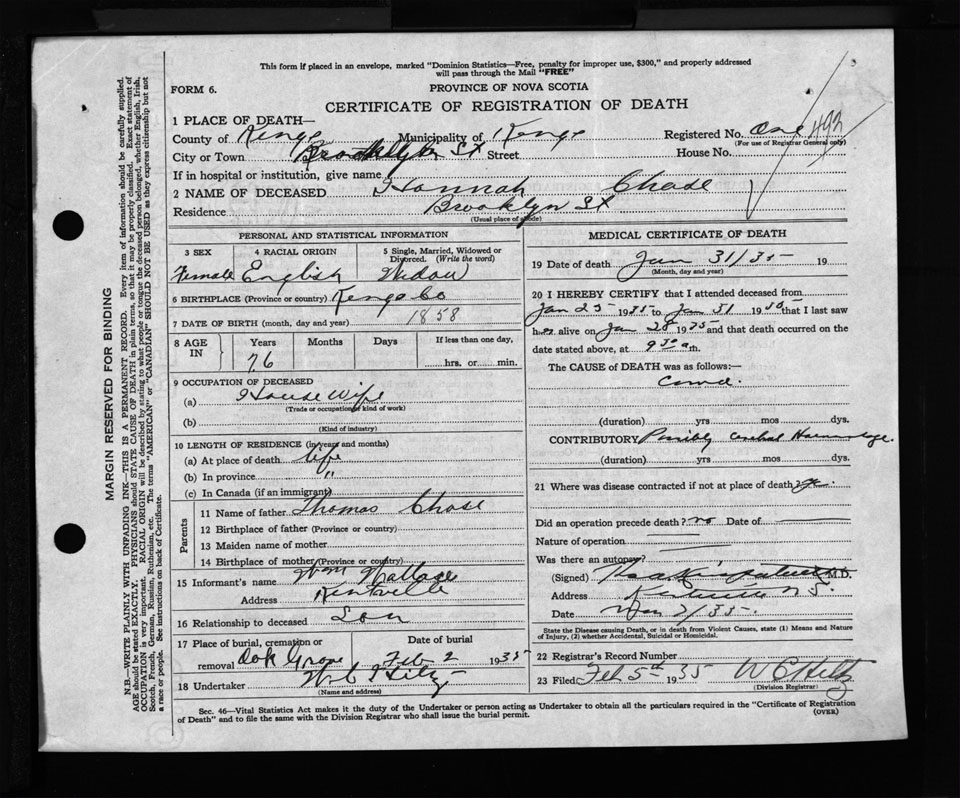 This form if placed in an envelope, marked "Dominion Statistics—Free, penalty for improper use, $300," and properly addressed
will pass through the Mail "FREE"
FORM 6.
PROVINCE OF NOVA SCOTIA
CERTIFICATE OF REGISTRATION OF DEATH
1 PLACE OF DEATH—
County of Kings Municipality of Kings Registered No. One 492
(For use of Registrar General only)
City or Town Brooklyn St Street House No.
If in hospital or institution, give name
2 NAME OF DECEASED Hannah Chase
Residence Brooklyn St
(Usual place of abode)
PERSONAL AND STATISTICAL INFORMATION
3 SEX 4 RACIAL ORIGIN 5 Single, Married, Widowed or Divorced. (Write the word)
Female English Widow
6 BIRTHPLACE (Province or country) Kings Co
7 DATE OF BIRTH (month, day and year) 1858
8 AGE IN Years Months Days If less than one day,
76 hrs. or min.
9 OCCUPATION OF DECEASED
(a) House Wife
(Trade or occupation or kind of work)
(b)
(Kind of industry)
10 LENGTH OF RESIDENCE (in years and months)
(a) At place of death life
(b) In province "
(c) In Canada (if an immigrant)
Parents
11 Name of father Thomas Chase
12 Birthplace of father (Province or country)
13 Maiden name of mother
14 Birthplace of mother (Province or country)
15 Informant's name Wm Wallace
Address Kentville
16 Relationship to deceased Son
17 Place of burial, cremation or removal Date of burial
Oak Grove Feb 2 1935
18 Undertaker
(Name and address)
MEDICAL CERTIFICATE OF DEATH
19 Date of death Jan 31/35 19
(Month, day and year)
20 I HEREBY CERTIFY that I attended deceased from
Jan 25 1935 to Jan 31 1935 that I last saw
her alive on Jan 28 1935 and that death occurred on
date stated above, at 9 30 a m.
The CAUSE of DEATH was as follows:—
(duration) yrs mos dys.
CONTRIBUTORY Possibly Cerebral Haemorrhage.
(duration) yrs mos dys.
21 Where was disease contracted if not at place of death?
Did an operation precede death? no Date of
Nature of operation
Was there an autopsy?
(Signed) M.D.
Address Kentville N.S.
Date 2/35.
State the Disease causing Death, or in death from Violent Causes, state (1) Means and Nature
of Injury, (2) whether Accidental, Suicidal or Homicidal.
22 Registrar's Record Number
23 Filed Feb 5th 1935 W C Hiltz
(Division Registrar)
Sec. 46—Vital Statistics Act makes it the duty of the Undertaker or person acting as Undertaker to obtain all the particulars required in the "Certificate of Registration
of Death" and to file the same with the Division Registrar who shall issue the burial permit.
(OVER)
MARGIN RESERVED FOR BINDING
N.B.—WRITE PLAINLY WITH UNFADING INK—THIS IS A PERMANENT RECORD. Every item of information should be carefully supplied.
AGE should be stated EXACTLY. PHYSICIANS should STATE CAUSE OF DEATH in plain terms, so that it may be properly classified. Exact statement of
OCCUPATION is very important. RACIAL ORIGIN will be described by stating to what people or tongue the deceased person belonged, whether English, Irish,
Scotch, French, German, Russian, Ruthenian, etc. The terms "AMERICAN" or "CANADIAN" SHOULD NOT BE USED as they express citizenship but not
a race or people. See instructions on back of Certificate.